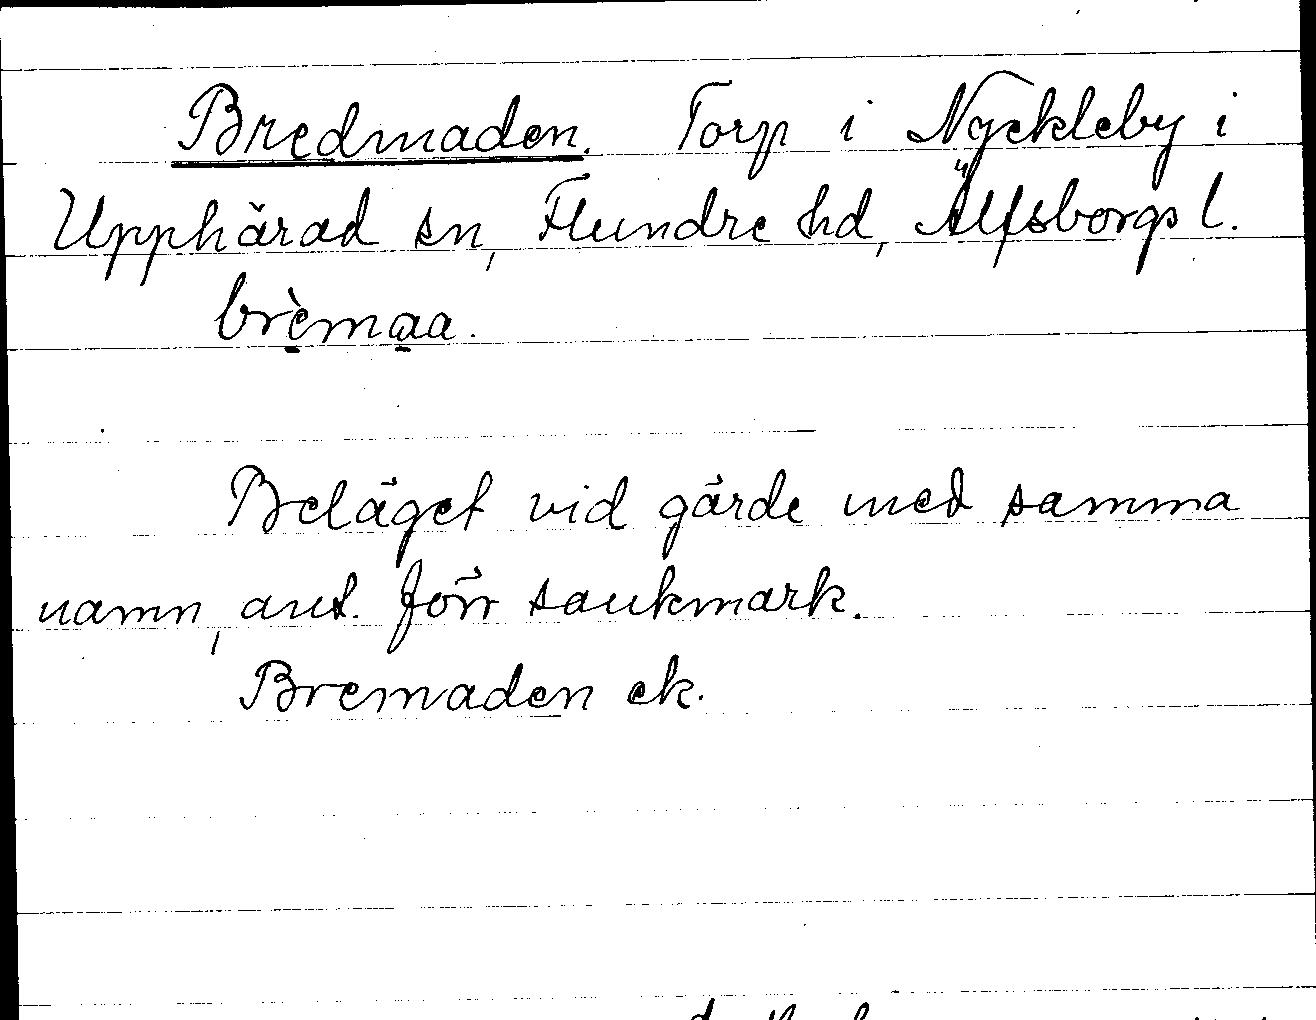 Bredmaden. Torp i Nyckleby i
Upphärad sn, Flundre hd, Älfsborgs l.
brèmaa.
Beläget vid gärde med samma
namn, ant. förr sankmark.
Bremaden ek.